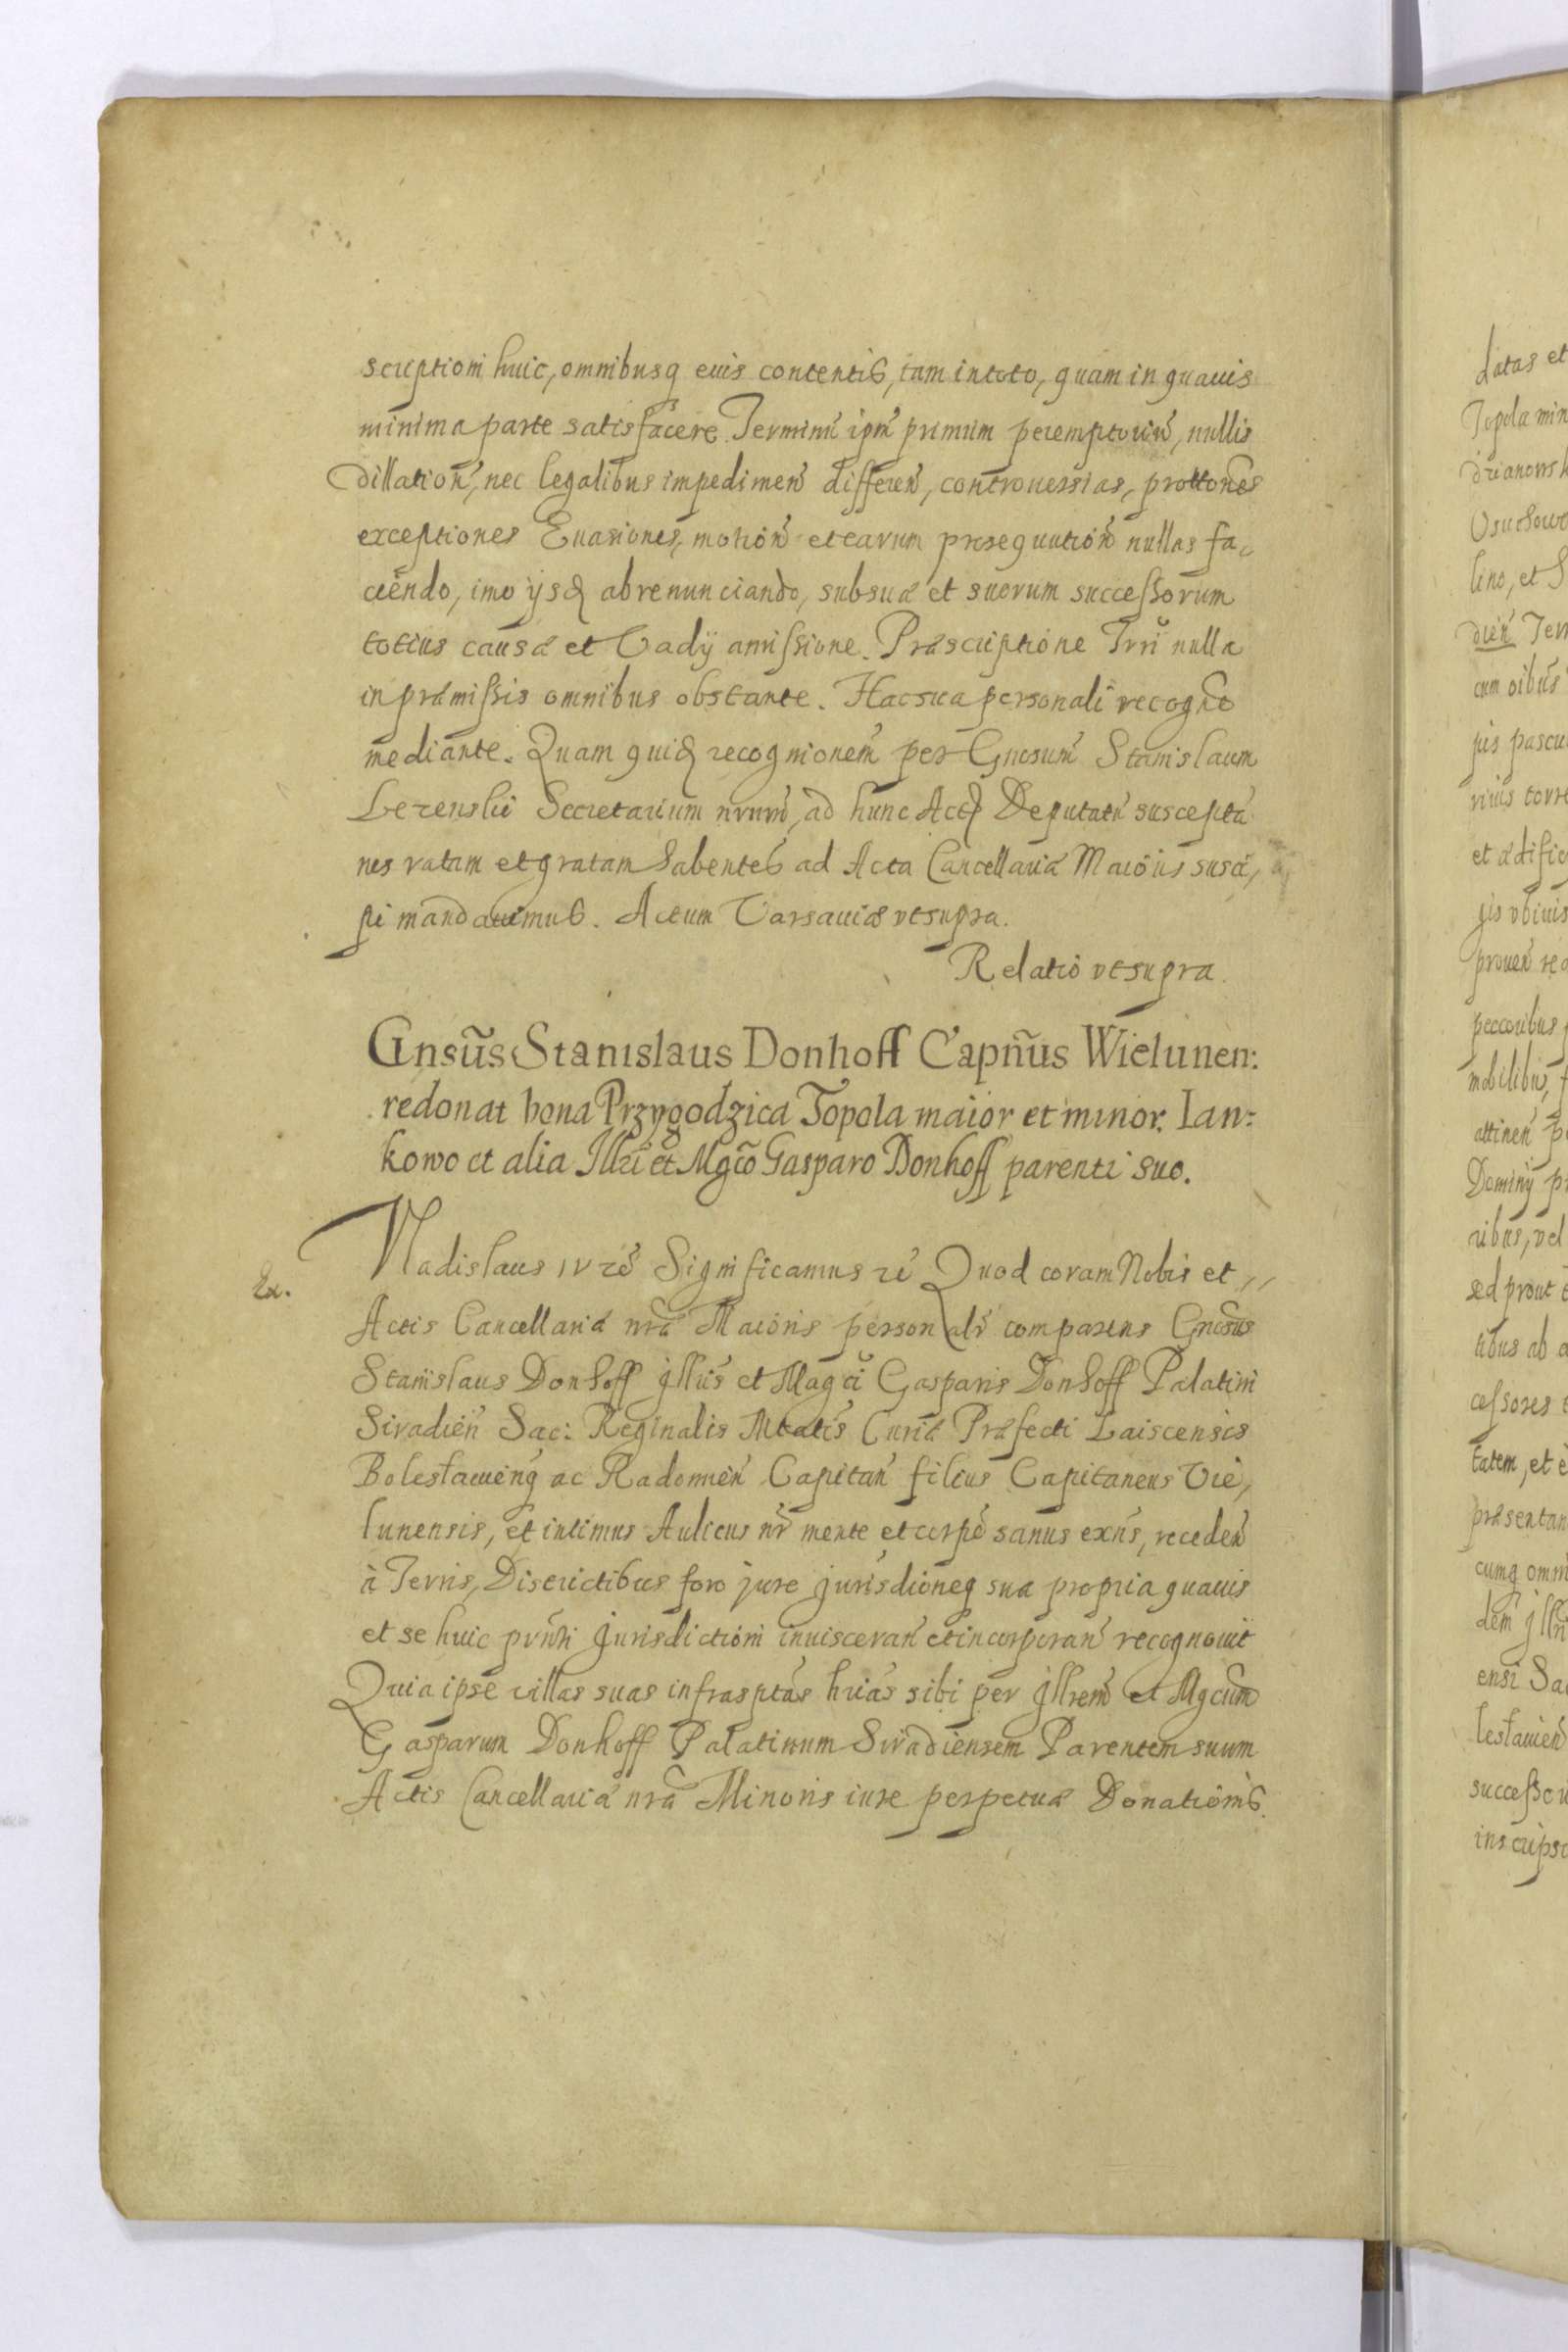 scriptioni huic, omnibusq eius contentis, tam in toto, quam in quauis
minima parte satisfacere. Terminũ ipm̃ primum peremptoriũ, nullis
dillation̄, nec legalibus impedimen̄ differen̄, controuersias, prottones
exceptiones Euasiones, motion̄ et earum prosequution̄ nullas fa,
ciendo, imo ijsq abrenunciando, sub suæ et suorum successorum
totius causæ et Vadij amissione. Præscriptione Trri nulla
in præmissis omnibus obstante. Hac sua personali recognẽ
mediante. Quam quid recognionem̃ per Gnosum̃ Stanislaum
Secretarium nrum̃, ad hunc Actũ Deputatũ susceptã
nos ratam et gratam habentes ad Acta Cancellariæ Maioris susci,
pi mandauimus. Actum Varsauiæ vt supra.
Relatio vt supra.
Gnsũs Stanislaus Donhoff Capñus Wielunen:
redonat bona Przygodzica Topola maior et minor. Ian:
kowo et alia Illri et Mgco Gasparo Donhoff parenti suo.
Ex.
Vladislaus IV rẽ Significamus rẽ Quod coram Nobis et
Actis Cancellariæ nræ Maioris personalr comparens Gnosus
Stanislaus Donhoff Jllris et Magci Gasparis Donhoff Palatini
Siradien̄ Sac: Reginalis Mtatis Curiæ Præfecti Laiscensis
Boleslauienq ac Radomien̄ Capitan̄ filius Capitaneus Vie,
lunensis, et intimus Aulicus nr̃ mente et corpẽ sanus exn̄s, receden̄
à Terris, Districtibus foro jure jurisdioneq sua propria quauis
et se huic prnti Jurisdictioni inuisceran̄ et incorporan̄ recognouit
Quia ipse villas suas infrasptas huias sibi per Jllrem̃ et Mgcum
Gasparum Donhoff Palatinum Siradiensem Parentem suum
Actis Cancellariæ nræ Minoris iure perpetuæ Donationis
datas et
Topola min
drianowsk
Osuchow
lino, et S
dien̄ Terr
cum oibus
jis pascu
riuis torre
et ædific
gis vbiuis
prouen̄ re
peccoribus
mobilibus, f
attinen̄ p
Dominij p
ribus, vel
sed prout
tibus ab a
cessores
tatem, et
præsentan
cumq omni
dem Jllri
ensi Sa
leslauien̄
successor
inscripso